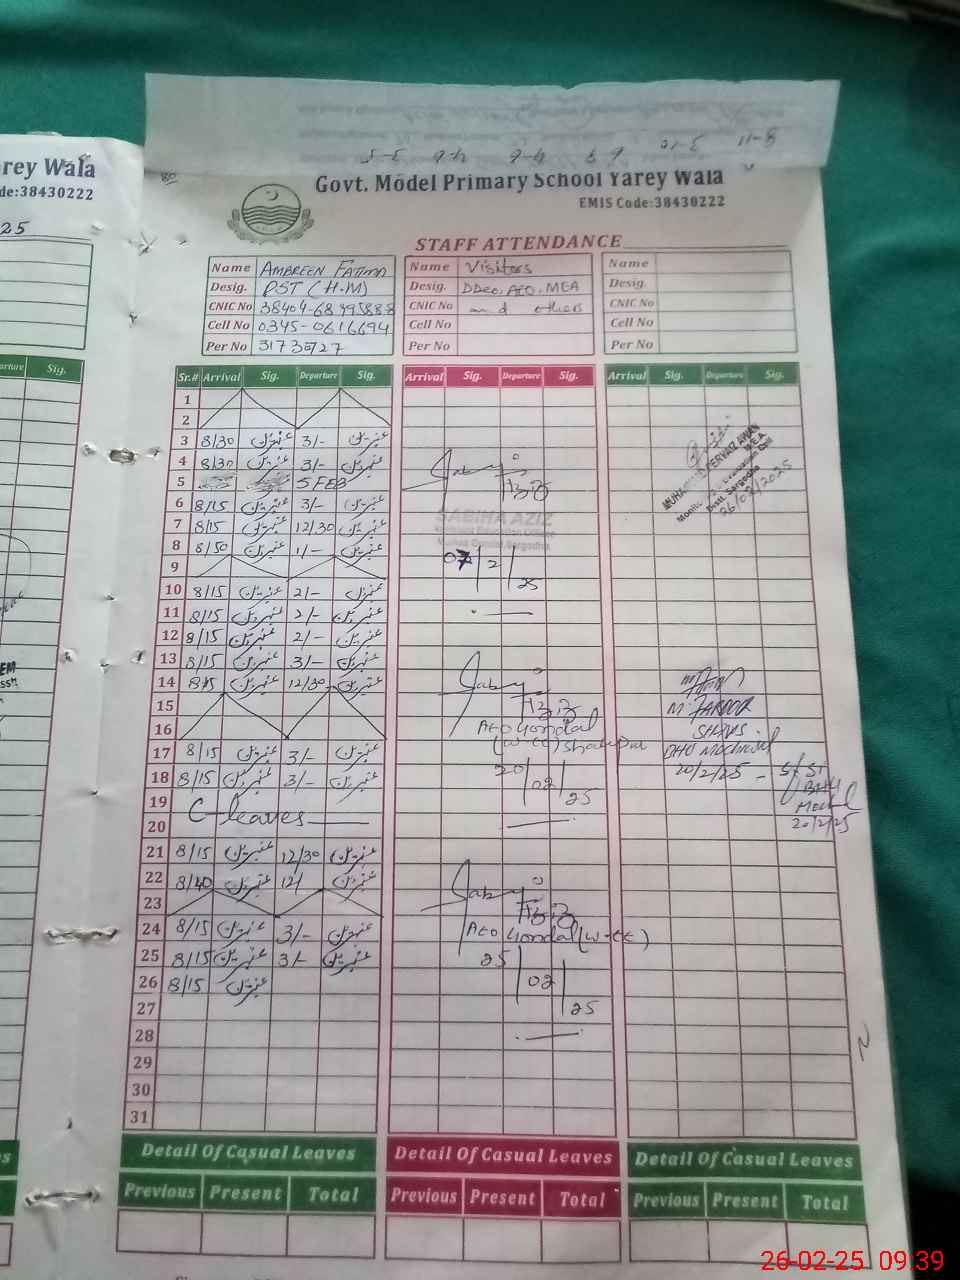 rey Wala
de:38430222
25
Govt. Model Primary School Yarey Wala
EMIS Code:38430222
STAFF ATTENDANCE
Name AMBREEN FATIMA
Desig. PST (H.M)
CNIC No
Cell No 0345-0616694
Per No
Name Visitors
Desig. DDeo, AEO, MEA
CNIC No and others
Cell No
Per No
Name
Desig.
CNIC No
Cell No
Per No
arture Sig.
Sr.# Arrival Sig. Departure Sig. Arrival Sig. Departure Sig. Arrival Sig. Departure Sig.
1
2
3 8/30 عنبرین 3/- عنبرین
4 8/30 عنبرین 3/- عنبرین
5 5 FEB
6 8/15 عنبرین 3/- عنبرین
7 8/15 عنبرین 12/30 عنبرین
8 8/50 عنبرین 1/- عنبرین
9
10 8/15 عنبرین 2/- عنبرین
11 8/15 عنبرین 2/- عنبرین
12 8/15 عنبرین 2/- عنبرین
13 8/15 عنبرین 3/- عنبرین
14 8/15 عنبرین 12/30 عنبرین
15
16
17 8/15 عنبرین 3/- عنبرین
18 8/15 عنبرین 3/- عنبرین
19 C-leaves
20
21 8/15 عنبرین 12/30 عنبرین
22 8/40 عنبرین 12/ عنبرین
23
24 8/15 عنبرین 3/- عنبرین
25 8/15 عنبرین 3/- عنبرین
26 8/15 عنبرین
27
28
29
30
31
Sabiha Aziz
SABIHA AZIZ
07/2/25
Sabiha Aziz
AEO Gondal
(W-EE) Shahpur
20/02/25
Sabiha Aziz
AEO Gondal (W-EE)
25/02/25
MUHAMMAD PERVAIZ AWAN
MEA
Distt. Sargodha
26/02/2025
M. FAROOR
20/2/25
20/2/25
Detail Of Casual Leaves Detail Of Casual Leaves Detail Of Casual Leaves
Previous Present Total Previous Present Total Previous Present Total
26-02-25 09:39